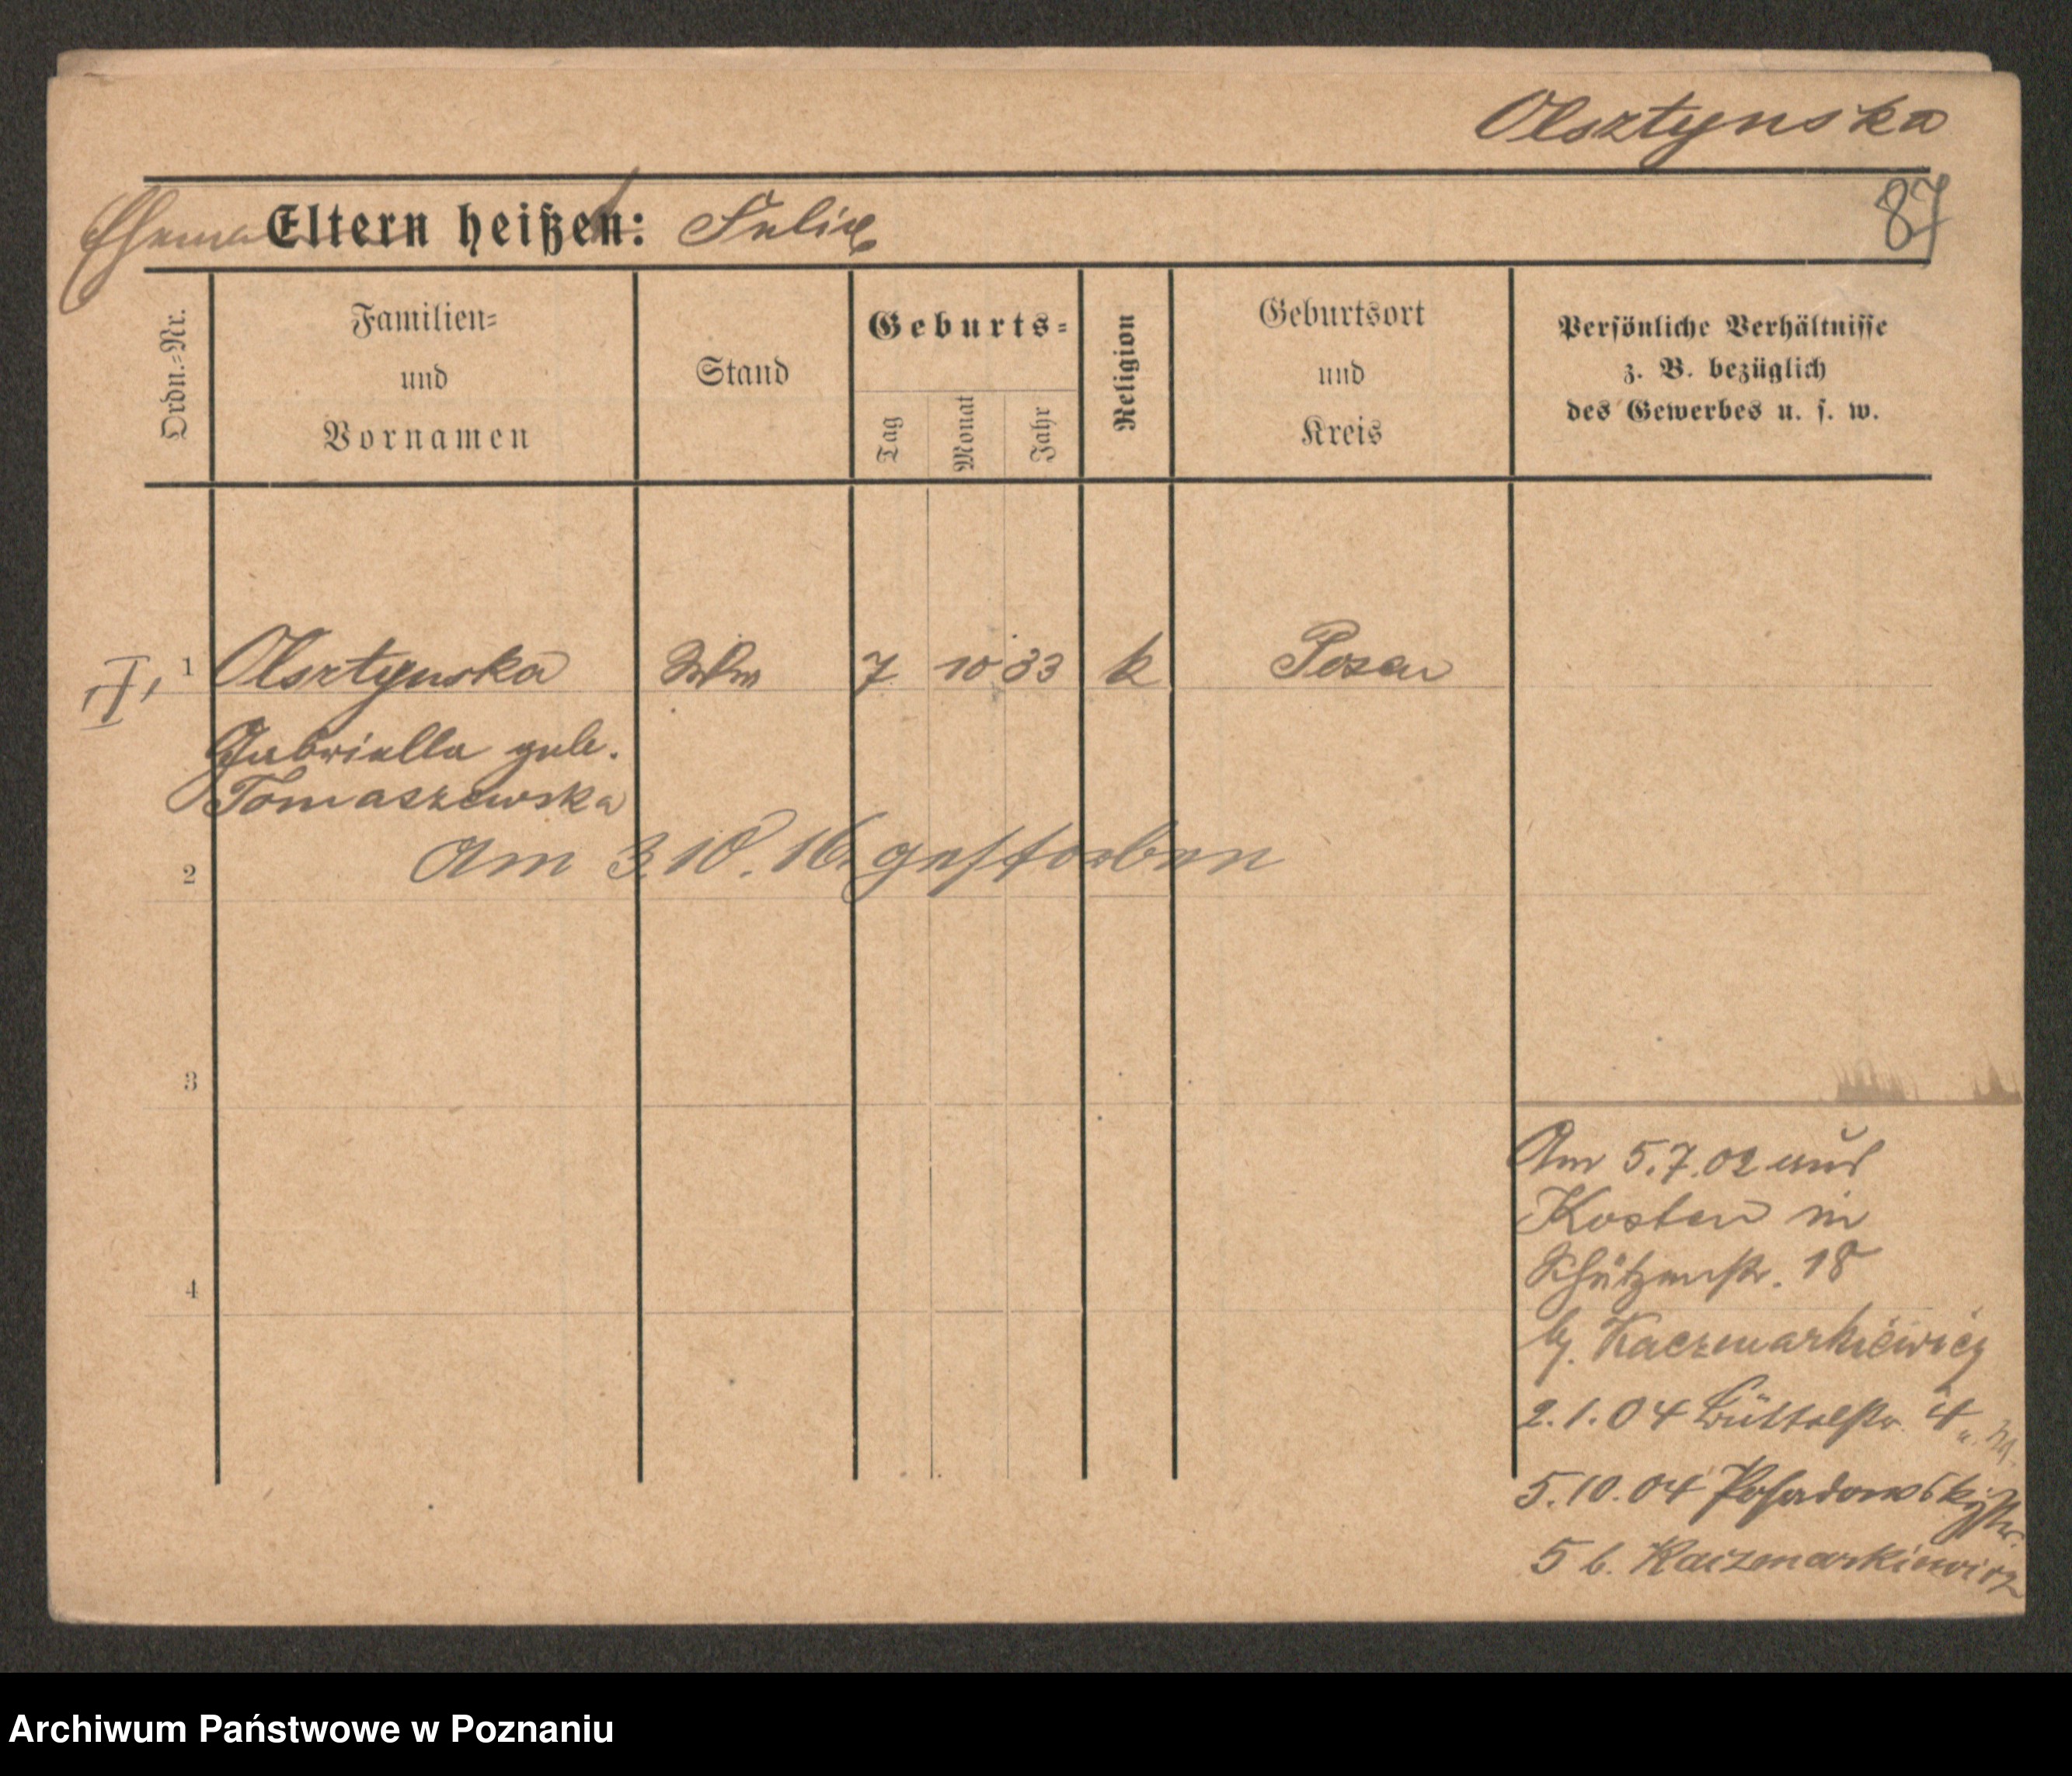 Olsztynska
Ehema Eltern heißen: Felix
87
Ordn.=Nr.
Familien=
und
Vornamen
Stand
Geburts=
Tag
Monat
Jahr
Religion
Geburtsort
und
Kreis
Persönliche Verhältnisse
z. B. bezüglich
des Gewerbes u. s. w.
1 Olsztynska 7 10 33 k Posen
Gabriella geb.
Tomaszewska
Am 3.10.16. gestorben
2
3
4
Am 5.7.02 aus
Kosten in
Schützenstr. 18
b. Kaczmarkiewicz
2.1.04 Büttelstr. 4
5.10.04 Posadowskystr.
5 b. Kaczmarkiewicz
Archiwum Państwowe w Poznaniu